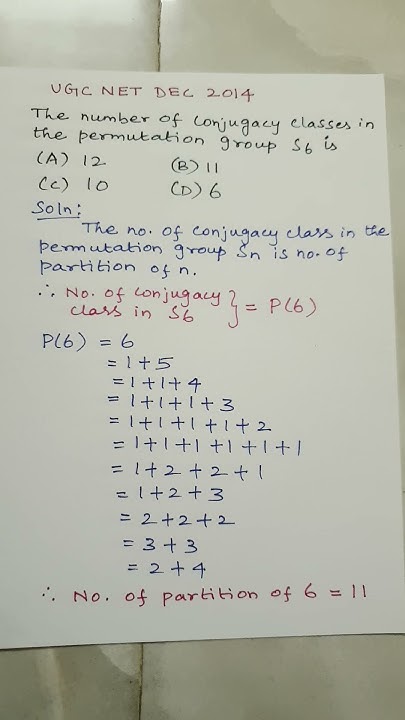 UGC NET DEC 2014
The number of conjugacy classes in
the permutation group S6 is
(A) 12 (B) 11
(C) 10 (D) 6
Soln:
The no. of conjugacy class in the
permutation group Sn is no. of
partition of n.
∴ No. of conjugacy
class in S6 } = P(6)
P(6) = 6
= 1+5
= 1+1+4
= 1+1+1+3
= 1+1+1+1+2
= 1+1+1+1+1+1
= 1+2+2+1
= 1+2+3
= 2+2+2
= 3+3
= 2+4
∴ No. of partition of 6 = 11